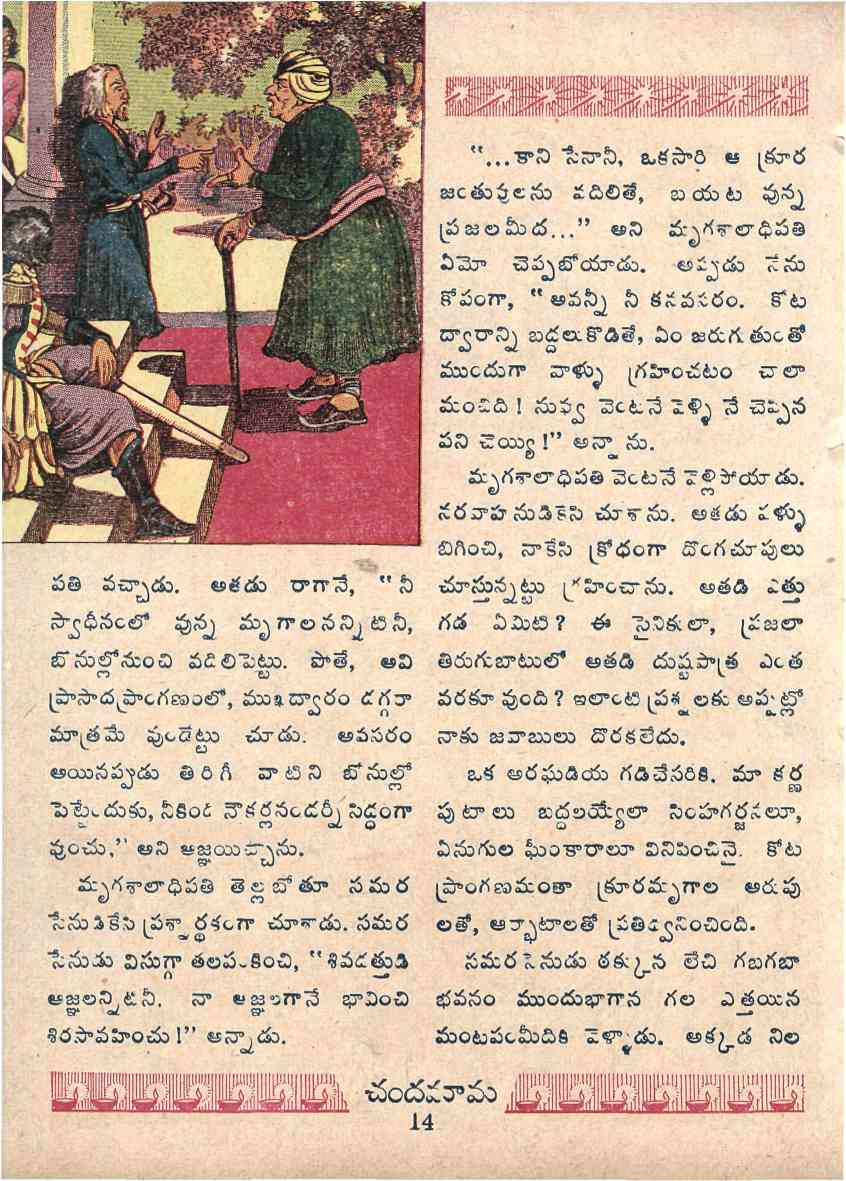 పతి వచ్చాడు. అతడు రాగానే, “నీ
స్వాధీనంలో వున్న మృగాలనన్నిటినీ,
బోనుల్లోనుంచి వదిలిపెట్టు. పోతే, అవి
ప్రాసాదప్రాంగణంలో, ముఖద్వారం దగ్గరా
మాత్రమే వుండేట్టు చూడు. అవసరం
అయినప్పుడు తిరిగీ వాటిని బోనుల్లో
పెట్టేందుకు, నీకింద నౌకర్లనందర్నీ సిద్ధంగా
వుంచు,” అని ఆజ్ఞయిచ్చాను.
మృగశాలాధిపతి తెల్లబోతూ సమర
సేనుడికేసి ప్రశ్నార్థకంగా చూశాడు. సమర
సేనుడు విసుగ్గా తలపంకించి, “శివదత్తుడి
ఆజ్ఞలన్నిటినీ, నా ఆజ్ఞలగానే భావించి
శిరసావహించు!” అన్నాడు.
“...కాని సేనానీ, ఒకసారి ఆ క్రూర
జంతువులను వదిలితే, బయట వున్న
ప్రజలమీద...” అని మృగశాలాధిపతి
ఏమో చెప్పబోయాడు. అప్పుడు నేను
కోపంగా, “అవన్నీ నీ కనవసరం. కోట
ద్వారాన్ని బద్దలుకొడితే, ఏం జరుగుతుందో
ముందుగా వాళ్ళు గ్రహించటం చాలా
మంచిది! నువ్వు వెంటనే వెళ్ళి నే చెప్పిన
పని చెయ్యి!” అన్నాను.
మృగశాలాధిపతి వెంటనే వెళ్లిపోయాడు.
నరవాహనుడికేసి చూశాను. అతడు పళ్ళు
బిగించి, నాకేసి క్రోధంగా దొంగచూపులు
చూస్తున్నట్టు గ్రహించాను. అతడి ఎత్తు
గడ ఏమిటి? ఈ సైనికులా, ప్రజలా
తిరుగుబాటులో అతడి దుష్టపాత్ర ఎంత
వరకూ వుంది? ఇలాంటి ప్రశ్నలకు అప్పట్లో
నాకు జవాబులు దొరకలేదు.
ఒక అరఘడియ గడిచేసరికి. మా కర్ణ
పుటాలు బద్దలయ్యేలా సింహగర్జనలూ,
ఏనుగుల ఘీంకారాలూ వినిపించినై. కోట
ప్రాంగణమంతా క్రూరమృగాల అరుపు
లతో, ఆర్భాటాలతో ప్రతిధ్వనించింది.
సమరసేనుడు ఠక్కున లేచి గబగబా
భవనం ముందుభాగాన గల ఎత్తయిన
మంటపంమీదికి వెళ్ళాడు. అక్కడ నిల
చందమామ
14